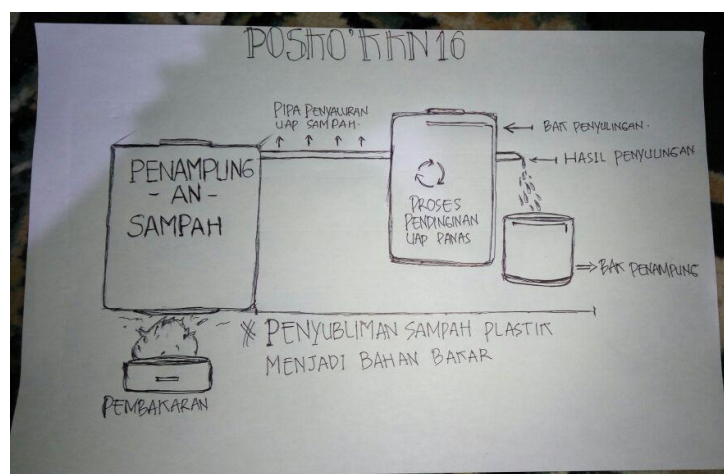 POSKO'KKN 16
PIPA PENYALURAN
UAP SAMPAH.
BAK PENYULINGAN.
HASIL PENYULINGAN
PENAMPUNG
- AN -
SAMPAH
PROSES
PENDINGINAN
UAP PANAS
BAK PENAMPUNG
* PENYUBLIMAN SAMPAH PLASTIK
MENJADI BAHAN BAKAR
PEMBAKARAN